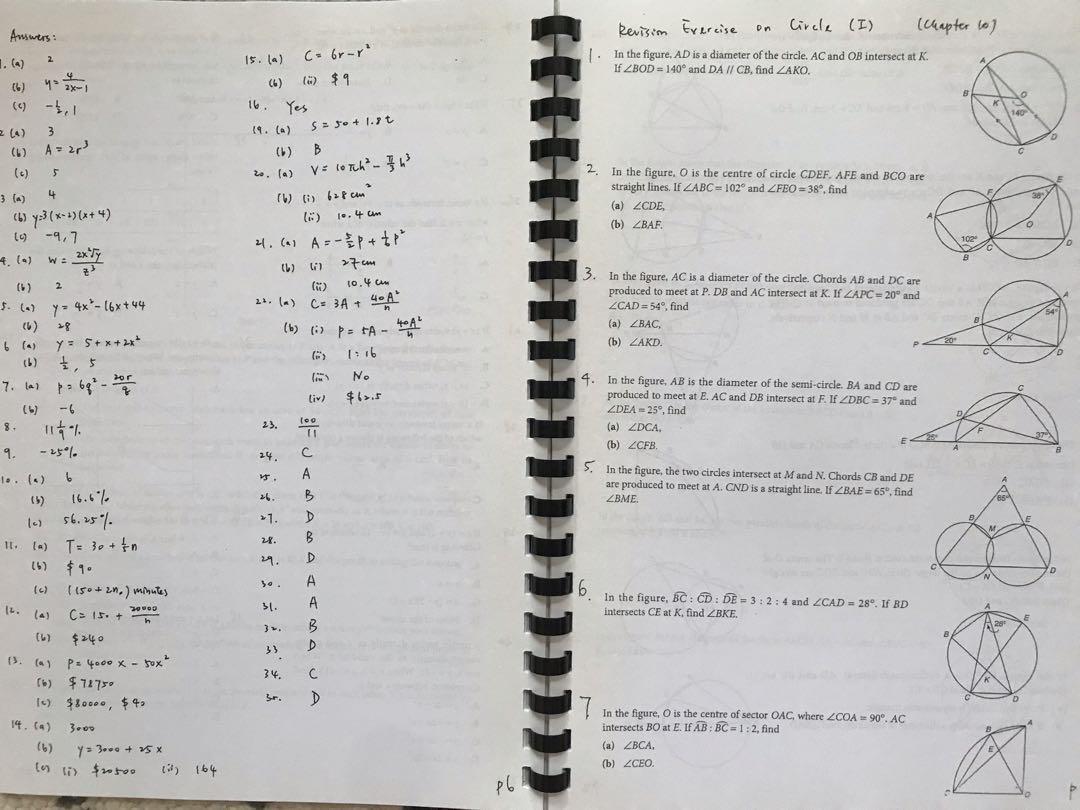 Answers:
1. (a) 2
(b) y = 4/(2x-1)
(c) -½, 1
2 (a) 3
(b) A = 2r³
(c) 5
3 (a) 4
(b) y=3(x-2)(x+4)
(c) -9, 7
4. (a) W = 2x²√y/z³
(b) 2
5. (a) y = 4x²-16x+44
(b) 28
6 (a) y = 5+x+2x²
(b) ½, 5
7. (a) p = 6q² - 20r/q
(b) -6
8. 11 1/9 %
9. -25%
10. (a) 6
(b) 16.6%
(c) 56.25%
11. (a) T = 30 + ⅕n
(b) $90
(c) (150 + 2n.) minutes
12. (a) C = 150 + 20000/n
(b) $240
13. (a) P = 4000x - 50x²
(b) $78750
(c) $80000, $40
14. (a) 3000
(b) y = 3000 + 25x
(c) (i) $20500 (ii) 164
15. (a) C = 6r-r²
(b) (ii) $9
16. Yes
19. (a) S = 50 + 1.8t
(b) B
20. (a) V = 10πh² - π/3 h³
(b) (i) 628 cm²
(ii) 10.4 cm
21. (a) A = -5/2 P + 1/6 P²
(b) (i) 27cm
(ii) 10.4 cm
22. (a) C = 3A + 40A²/n
(b) (i) P = 5A - 40A²/n
(ii) 1:16
(iii) No
(iv) $62.5
23. 100/11
24. C
25. A
26. B
27. D
28. B
29. D
30. A
31. A
32. B
33 D
34. C
35. D
p6
Revision Exercise on Circle (I) (Chapter 10)
1. In the figure, AD is a diameter of the circle. AC and OB intersect at K.
If ∠BOD = 140° and DA // CB, find ∠AKO.
A
B
K
O
140°
C
D
2. In the figure, O is the centre of circle CDEF. AFE and BCO are
straight lines. If ∠ABC = 102° and ∠FEO = 38°, find
(a) ∠CDE,
(b) ∠BAF.
A
F
E
38°
O
102°
B
C
D
3. In the figure, AC is a diameter of the circle. Chords AB and DC are
produced to meet at P. DB and AC intersect at K. If ∠APC = 20° and
∠CAD = 54°, find
(a) ∠BAC,
(b) ∠AKD.
A
54°
B
K
P
20°
C
D
4. In the figure, AB is the diameter of the semi-circle. BA and CD are
produced to meet at E. AC and DB intersect at F. If ∠DBC = 37° and
∠DEA = 25°, find
(a) ∠DCA,
(b) ∠CFB.
C
D
F
E
25°
37°
A
B
5. In the figure, the two circles intersect at M and N. Chords CB and DE
are produced to meet at A. CND is a straight line. If ∠BAE = 65°, find
∠BME.
A
65°
B
E
M
C
D
N
6. In the figure, BC : CD : DE = 3 : 2 : 4 and ∠CAD = 28°. If BD
intersects CE at K, find ∠BKE.
A
E
28°
B
K
C
D
7 In the figure, O is the centre of sector OAC, where ∠COA = 90°. AC
intersects BO at E. If AB : BC = 1 : 2, find
(a) ∠BCA,
(b) ∠CEO.
A
B
E
C
O
p